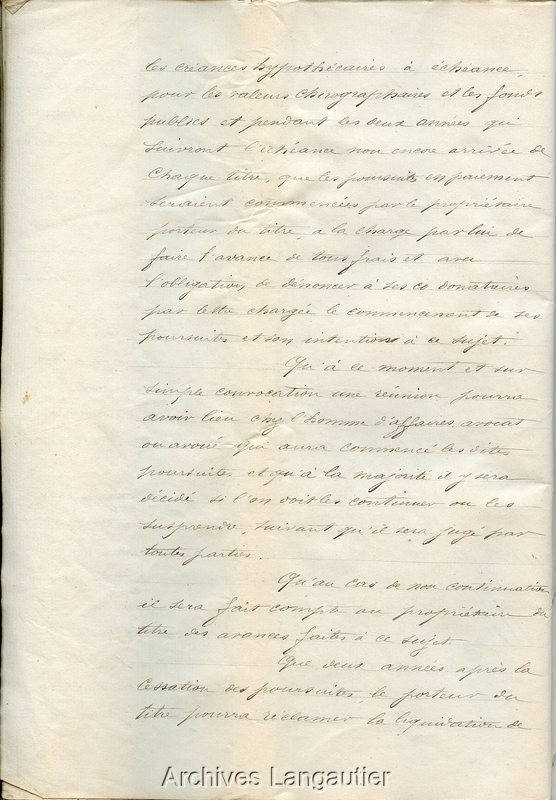 les créances hypothécaires à échéance,
pour les valeurs chirographaires et les fonds
publics et pendant les deux années qui
suivront l'échéance non encore arrivée de
chaque titre, que les poursuites en paiement
seraient commencées par le propriétaire
porteur du titre, à la charge par lui de
faire l'avance de tous frais et avec
l'obligation de dénoncer à ses co donataires
par lettre chargée le commencement de ses
poursuites et son intention à ce sujet.
Qu'à ce moment et sur
simple convocation une réunion pourra
avoir lieu chez l'homme d'affaires, avocat
ou avoué qui aura commencé les dites
poursuites et qu'à la majorité il y sera
décidé si l'on doit les continuer ou les
suspendre, suivant qu'il sera jugé par
toutes parties.
Qu'au cas de non continuation
il sera fait compte au propriétaire du
titre des avances faites à ce sujet
Que deux années après la
cessation des poursuites, le porteur du
titre pourra réclamer la liquidation de
Archives Langautier